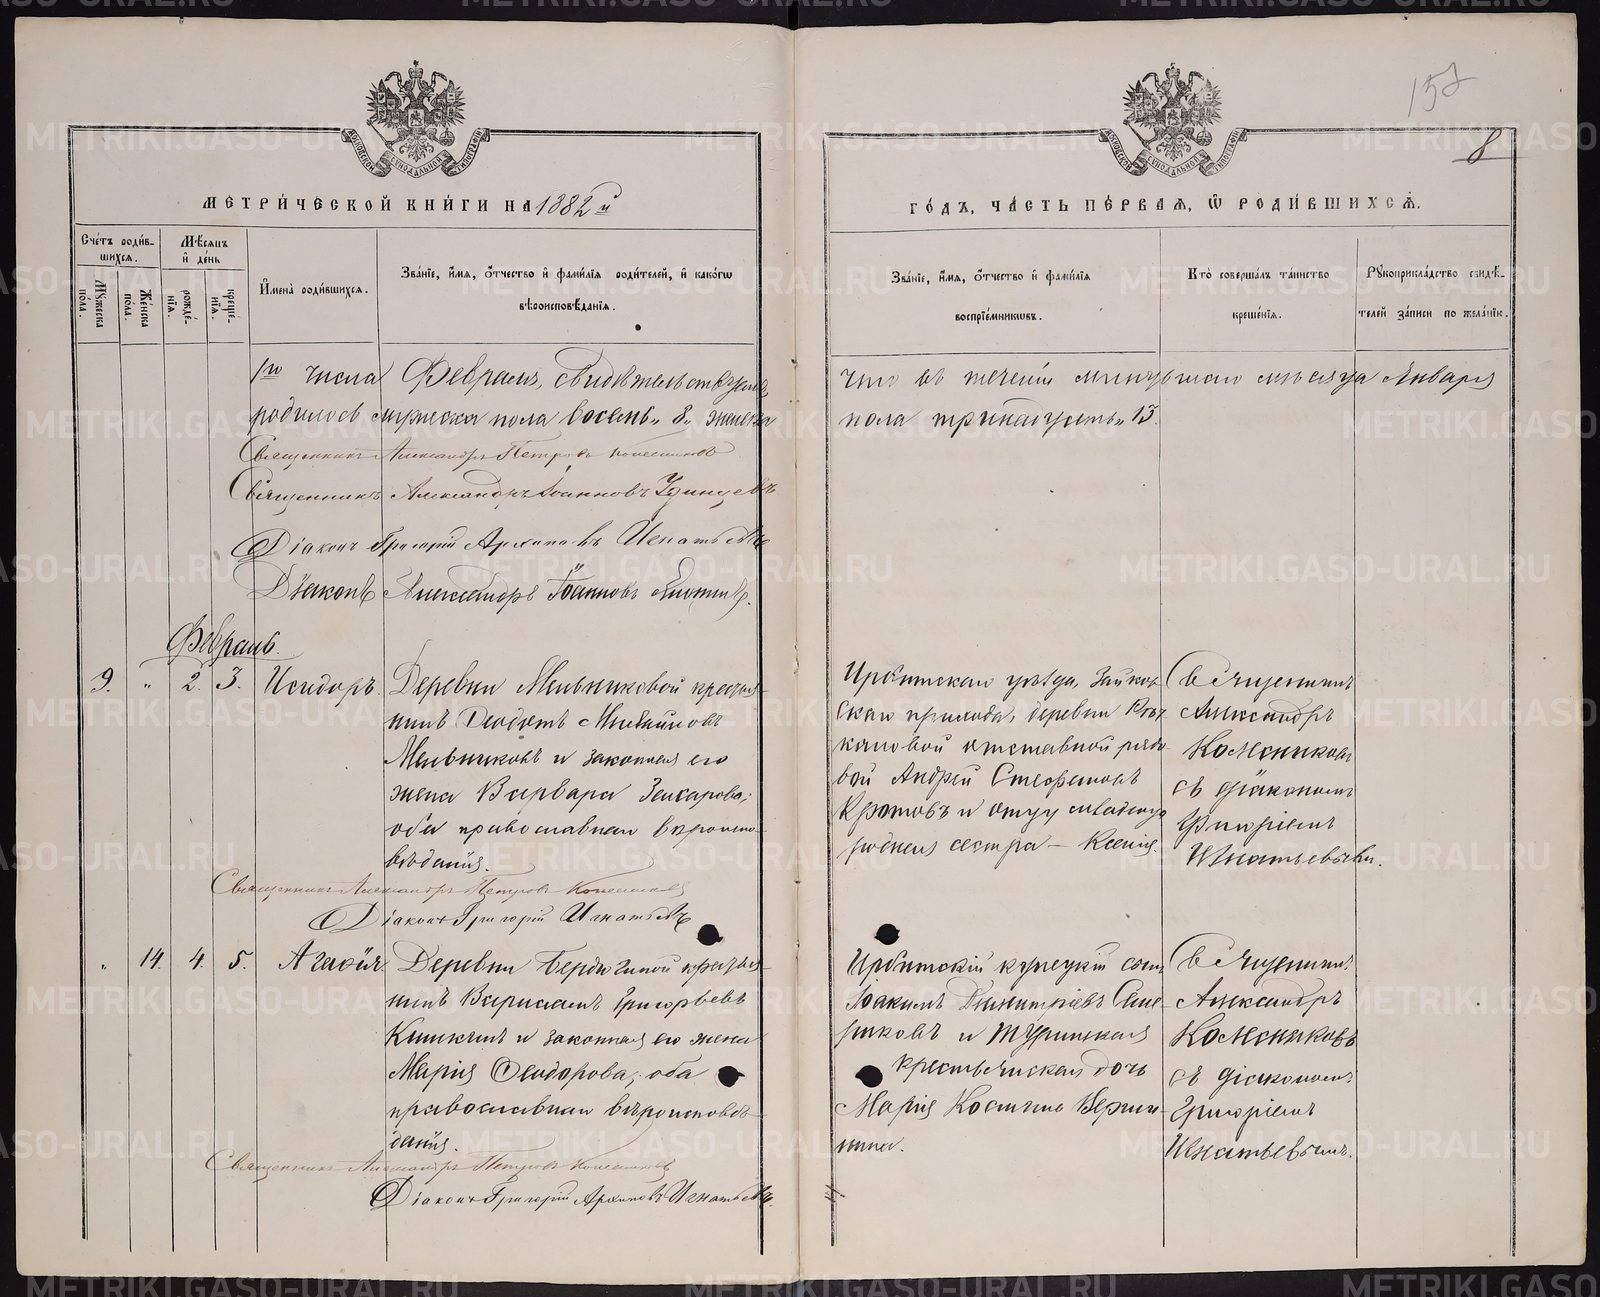 157
8
МЕТРИ́ЧЕСКОЙ КНИ́ГИ НА 1882 й
ГО́ДЪ, ЧА́СТЬ ПЕ́РВАЯ, Ѡ РОДИ́ВШИХСЯ.
Сче́тъ роди́в-
шихся.
Мꙋ́жеска пола.
Же́нска пола.
Мѣ́сяцъ и де́нь
рожде́-
нїя.
креще́-
нїя.
И҆мена̀ роди́вшихся.
Зва́нїе, и҆́мя, ѻ҆́тчество и҆ фами́лїя роди́телей, и҆ како́гѡ
вѣроисповѣ́данїя.
Зва́нїе, и҆́мя, ѻ҆́тчество и҆ фами́лїя
воспрїе́мникѡвъ.
Кто̀ соверша́лъ та́инство
креще́нїя.
Рꙋкоприкла́дство свидѣ́-
телей за́писи по жела́нїю.
1го числа Февраля, свидѣтельствуемъ,
родилось мужеска пола восемь „8„ женска
что въ теченіи минувшаго мѣсяца Января
пола тринадцать „13.
Священникъ Александръ Петровъ Колесниковъ
Священникъ Александръ Іоанновъ Удинцевъ
Діаконъ Григорій Архиповъ Игнатьевъ
Діаконъ Александръ Іоанновъ
Февраль.
9. „ 2. 3. Исидоръ.
Деревни Мельниковой крестья-
нинъ Ѳеодотъ Михайловъ
Мельниковъ и законная его
жена Варвара Захарова;
оба православнаго вѣроиспо-
вѣданія.
Ирбитскаго уѣзда, Зайков-
скаго прихода, деревни
отставной рядо-
вой Андрей Стефановъ
Кротовъ и отцу младенца
родная сестра — Ксенія.
Священникъ
Александръ
Колесниковъ
съ діакономъ
Григоріемъ
Игнатьевымъ.
Священникъ Александръ Петровъ Колесниковъ
Діаконъ Григорій Игнатьевъ
„ 14. 4. 5. Агаѳія.
Деревни Бердюгиной крестья-
нинъ Варлаамъ Григорьевъ
и законная его жена
Марія Ѳеодорова; оба
православнаго вѣроисповѣ-
данія.
Ирбитскій купецкій сынъ
Іоакимъ Димитріевъ
и Туринская
крестьянская дочь
Марія Космина
Священникъ
Александръ
Колесниковъ
съ діакономъ
Григоріемъ
Игнатьевымъ.
Священникъ Александръ Петровъ Колесниковъ
Діаконъ Григорій Архиповъ Игнатьевъ
METRIKI.GASO-URAL.RU